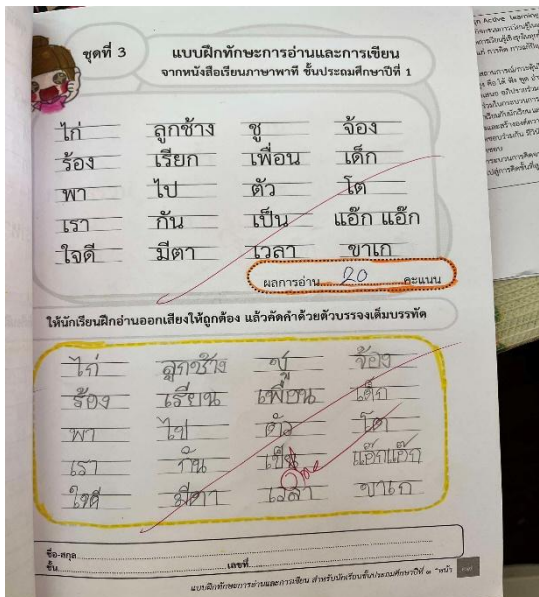 ชุดที่ 3
แบบฝึกทักษะการอ่านและการเขียน
จากหนังสือเรียนภาษาพาที ชั้นประถมศึกษาปีที่ 1
ไก่ ลูกช้าง ชู จ้อง
ร้อง เรียก เพื่อน เด็ก
พา ไป ตัว โต
เรา กัน เป็น แอ๊ก แอ๊ก
ใจดี มีตา เวลา ขาเก
ผลการอ่าน 20 คะแนน
ให้นักเรียนฝึกอ่านออกเสียงให้ถูกต้อง แล้วคัดคำด้วยตัวบรรจงเต็มบรรทัด
ไก่ ลูกช้าง ชู จ้อง
ร้อง เรียน เพื่อน เด็ก
พา ไป ตัว โต
เรา กัน เป็น แอ๊กแอ๊ก
ใจดี มีตา เวลา ขาเก
ชื่อ-สกุล
ชั้น เลขที่
แบบฝึกทักษะการอ่านและการเขียน สำหรับนักเรียนชั้นประถมศึกษาปีที่ ๑ หน้า